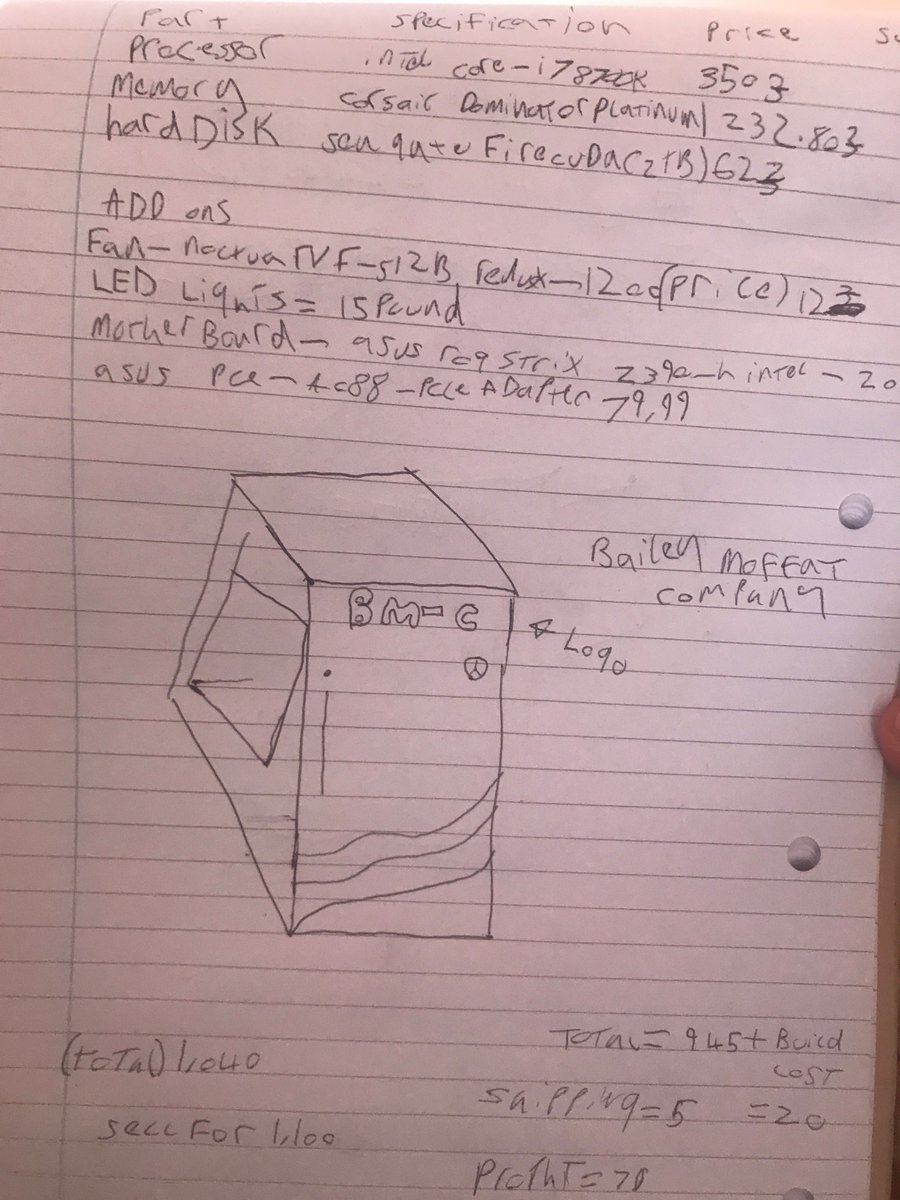 Part specification Price
Processor intel core-i7 8700K 350£
Memory corsair Dominator Platinum 232.80£
hard DiSK seagate FirecuDa (2TB) 62£
ADD ons
Fan - noctua NF-S12B redux - (Price) 12£
LED Lights = 15 Pound
MotherBoard - asus rog strix Z390-h intel - 20
asus Pce-Ac88 - Pcie ADaPter 79,99
Bailey Moffat
company
BM-C
Logo
Total = 945 + Build
cost
(total) 1,040
shipping = 5 = 20
sell For 1,100
Profit =